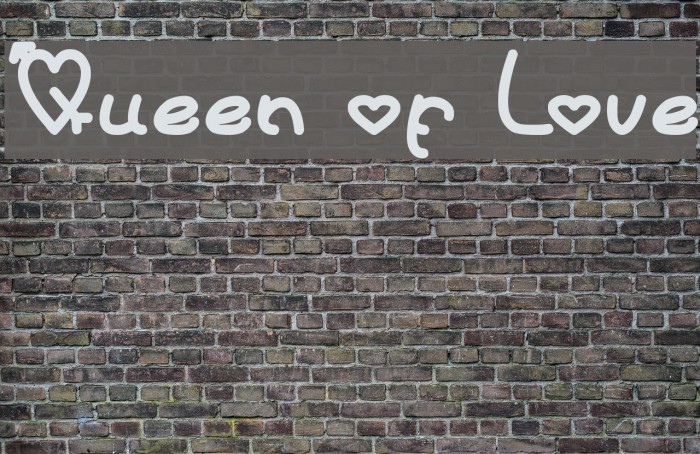 Queen of Love